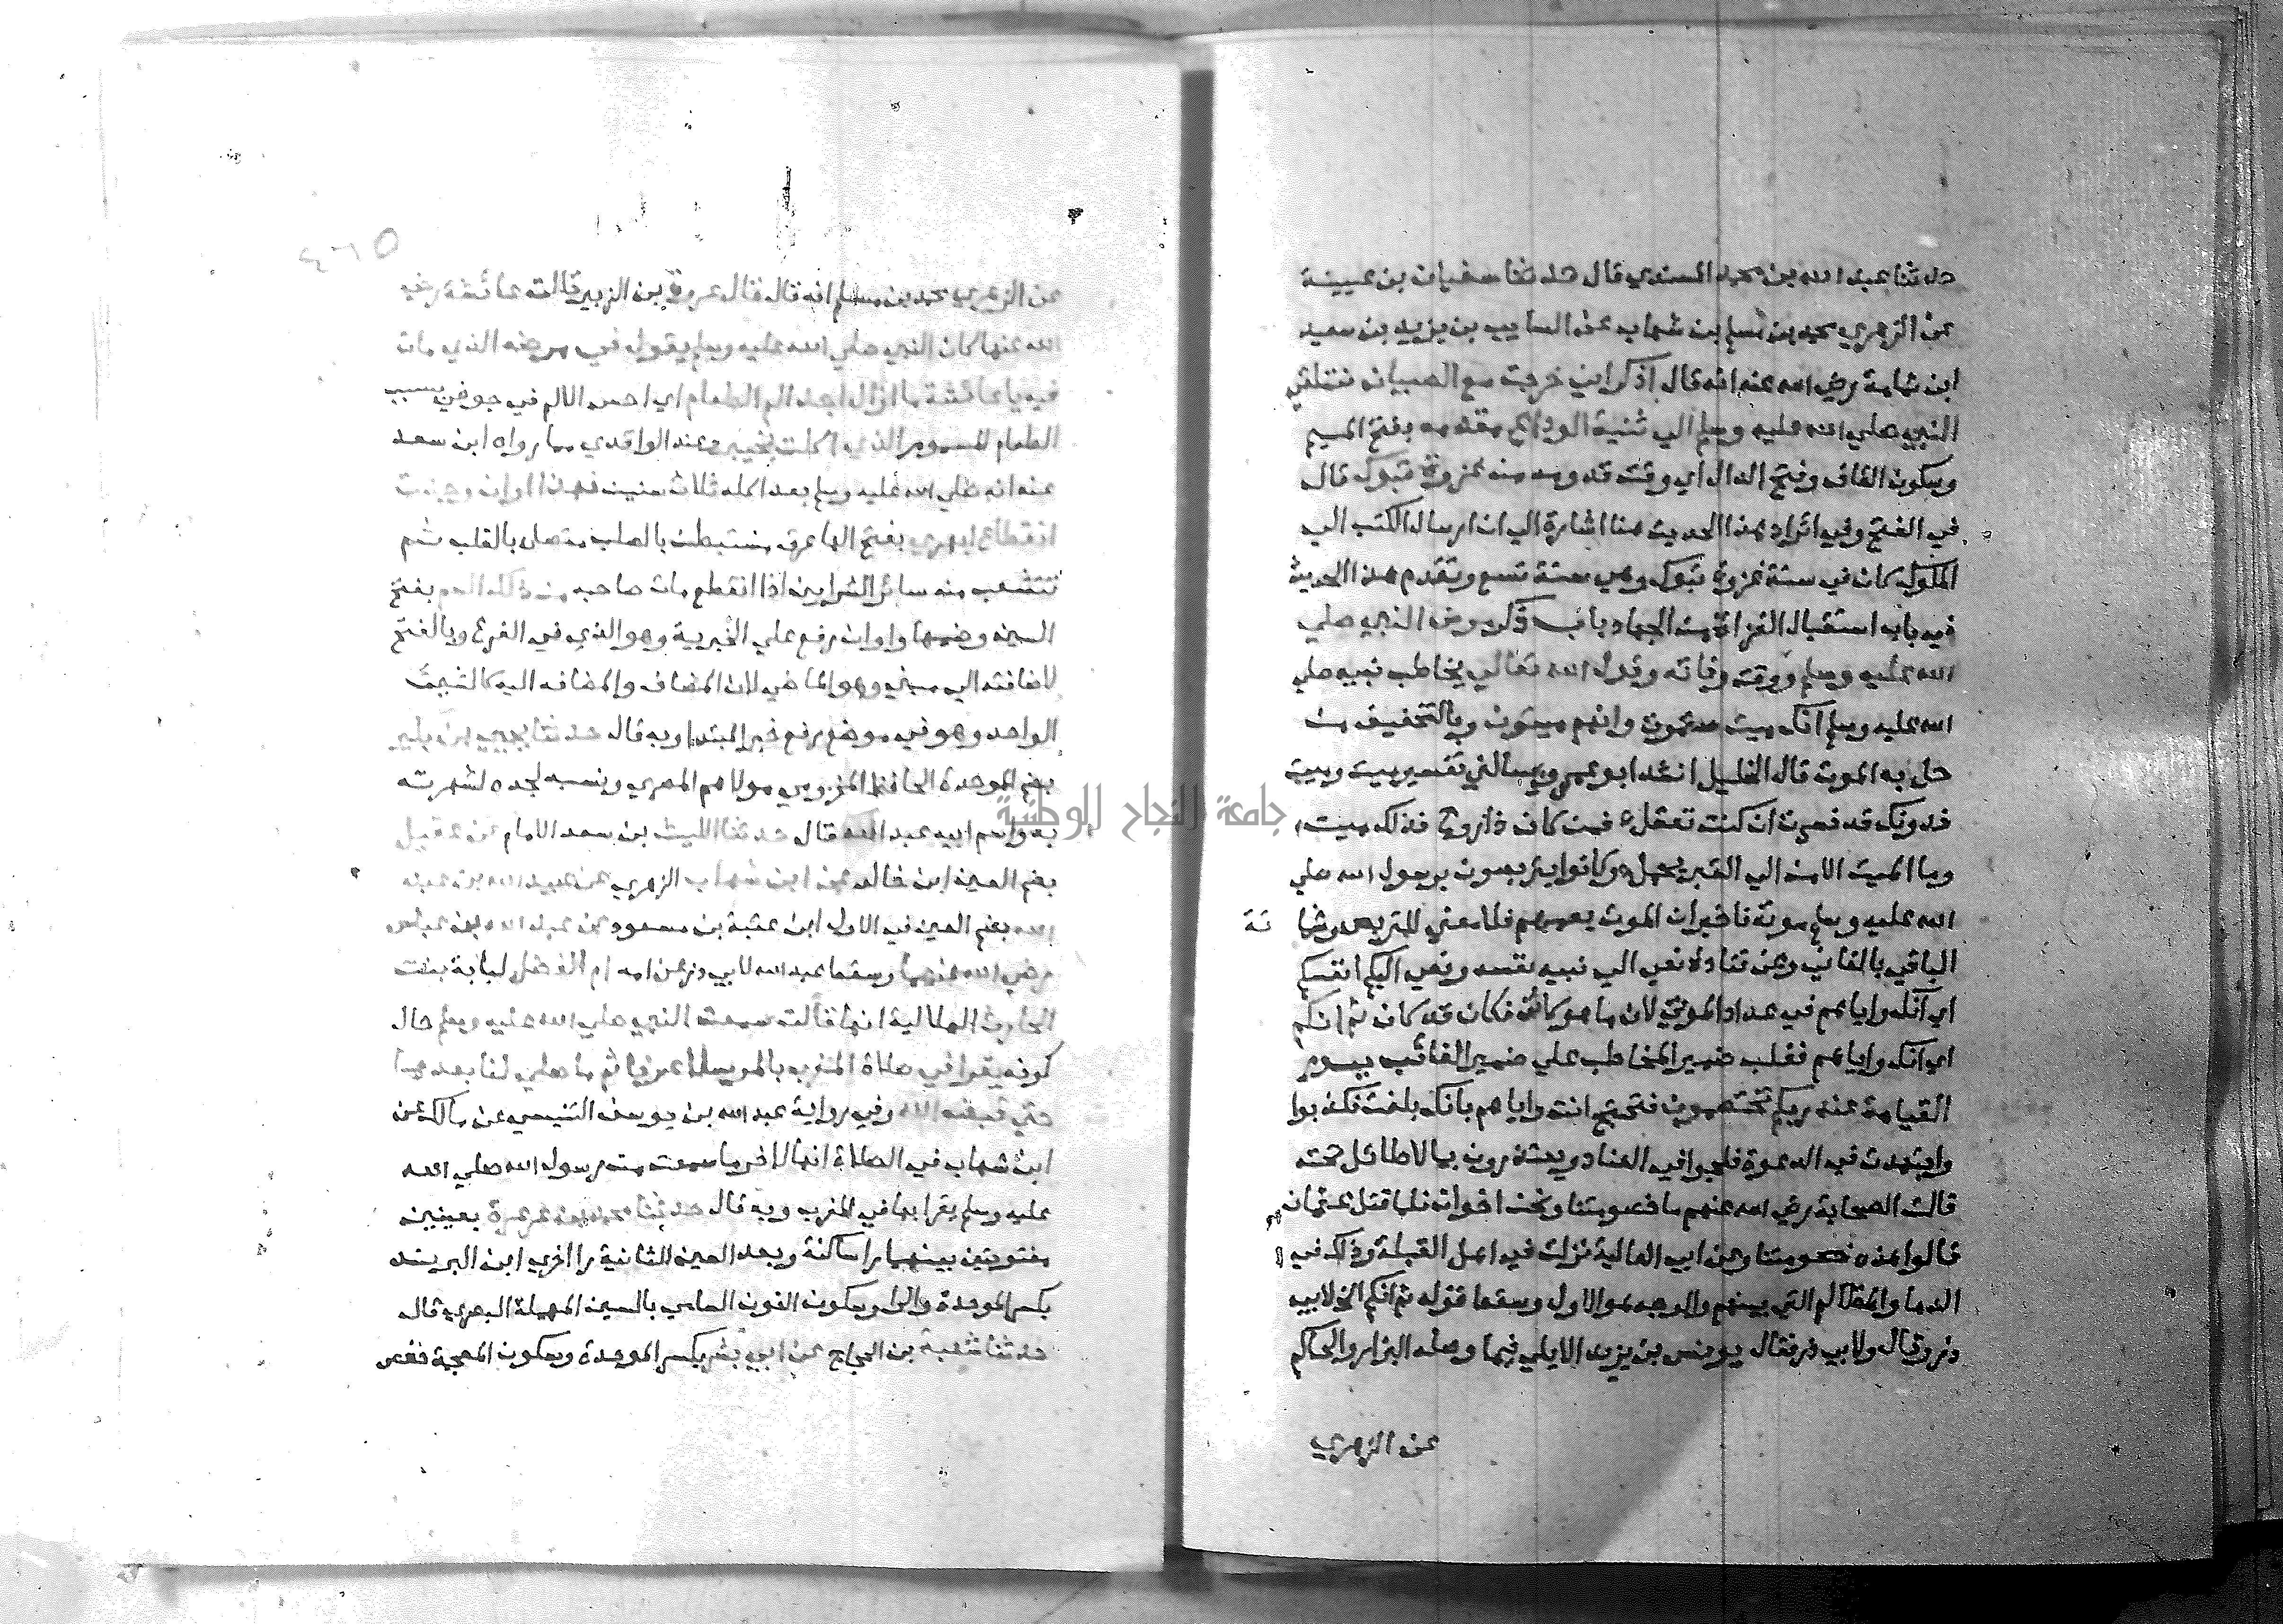 حدثنا عبد الله بن محمد المسندي قال حدثنا سفيان بن عيينة
عن الزهري محمد بن مسلم بن شهاب عن السايب بن يزيد بن سعيد
ابن ثمامة رضي الله عنه انه قال اذكر اني خرجت مع الصبيان نتلقى
النبي صلي الله عليه وسلم الي ثنية الوداع مقدمه بفتح الميم
وسكون القاف وفتح الدال اي وقت قدومه من غزوة تبوك قال
في الفتح وفي ايراد هذا الحديث هنا اشارة الي ان ارسال الكتب الي
الملوك كان في سنة غزوة تبوك وهي سنة تسع وتقدم هذا الحديث
في باب استقبال الغزاة من الجهاد باب ذكر مرض النبي صلي
الله عليه وسلم ووقت وفاته وقول الله تعالي يخاطب نبيه صلي
الله عليه وسلم انك ميت ستموت وانهم ميتون وبالتخفيف من
حل به الموت قال الخليل انشد ابو عمرو وتسالني تفسير ميت وميت
فدونك قد فسرت ان كنت تعقل فمن كان ذا روح فذلك ميت
وما الميت الا من الي القبر يحمل وكانوا يتربصون برسول الله صلي
الله عليه وسلم موته فاخبر ان الموت يعمهم فلا معني للتربص وشما تة
الباقي بالفاني وعن قتادة نعي الي نبيه نفسه ونعي اليكم انفسكم
اي انك واياهم في عداد الموتي لان ما هو كائن فكان قد كان ثم انكم
اي انك واياهم فغلب ضمير المخاطب علي ضمير الغائب يوم
القيامة عند ربكم تختصمون فتحتج انت واياهم بانك بلغت فكذبوا
واجتهدت في الدعوة فلجوا في العناد ويعتذرون بما لا طائل تحته
قالت الصحابة رضي الله عنهم ما خصومتنا ونحن اخوان فلما قتل عثمان
قالوا هذه خصومتنا وعن ابي العالية نزلت في اهل القبلة وذلك في
الدما والمظالم التي بينهم والوجه هو الاول وسقط قوله ثم انكم الخ لابي
ذر وقال ولابي ذر فقال يونس بن يزيد الايلي فيما وصله البزار والحاكم
عن الزهري
عن الزهري محمد بن مسلم انه قال قال عروة بن الزبير قالت عائشة رضي
الله عنها كان النبي صلي الله عليه وسلم يقول في مرضه الذي مات
فيه يا عائشة ما ازال اجد الم الطعام اي احس الالم في جوفي بسبب
الطعام المسموم الذي اكلت بخيبر وعند الواقدي مما رواه ابن سعد
عنه انه صلي الله عليه وسلم بعد اكله ثلاث سنين فهذا اوان وجدت
انقطاع ابهري بفتح الها عرق مستبطن بالصلب متصل بالقلب ثم
تتشعب منه سائر الشرايين اذا انقطع مات صاحبه من ذلك السم بفتح
السين وضمها واوان رفع علي الخبرية وهو الذي في الفرع وبالفتح
لاضافته الي مبني وهو الماضي لان المضاف والمضاف اليه كالشيء
الواحد وهو في موضع رفع خبر المبتدا وبه قال حدثنا يحيي بن بكير
بضم الموحدة الحافظ المخزومي مولاهم المصري ونسبه لجده لشهرته
به واسم ابيه عبد الله قال حدثنا الليث بن سعد الامام عن عقيل
بضم العين ابن خالد عن ابن شهاب الزهري عن عبيد الله بن عبد
الله بضم العين في الاول ابن عتبة بن مسعود عن عبد الله بن عباس
رضي الله عنهما وسقط عبد الله لابي ذر عن امه ام الفضل لبابة بنت
الحارث الهلالية انها قالت سمعت النبي صلي الله عليه وسلم حال
كونه يقرا في صلاة المغرب بالمرسلات عرفا ثم ما صلي لنا بعدها
حتي قبضه الله وفي رواية عبد الله بن يوسف التنيسي عن مالك عن
ابن شهاب في الصلاة انها لاخر ما سمعت من رسول الله صلي الله
عليه وسلم يقرا بها في المغرب وبه قال حدثنا محمد بن عرعرة بعينين
مفتوحتين بينهما را ساكنة وبعد العين الثانية را اخري ابن البرند
بكسر الموحدة والرا وسكون النون السامي بالسين المهملة البصري قال
حدثنا شعبة بن الحجاج عن ابي بشر بكسر الموحدة وسكون المعجمة جعفر
جامعة النجاح الوطنية